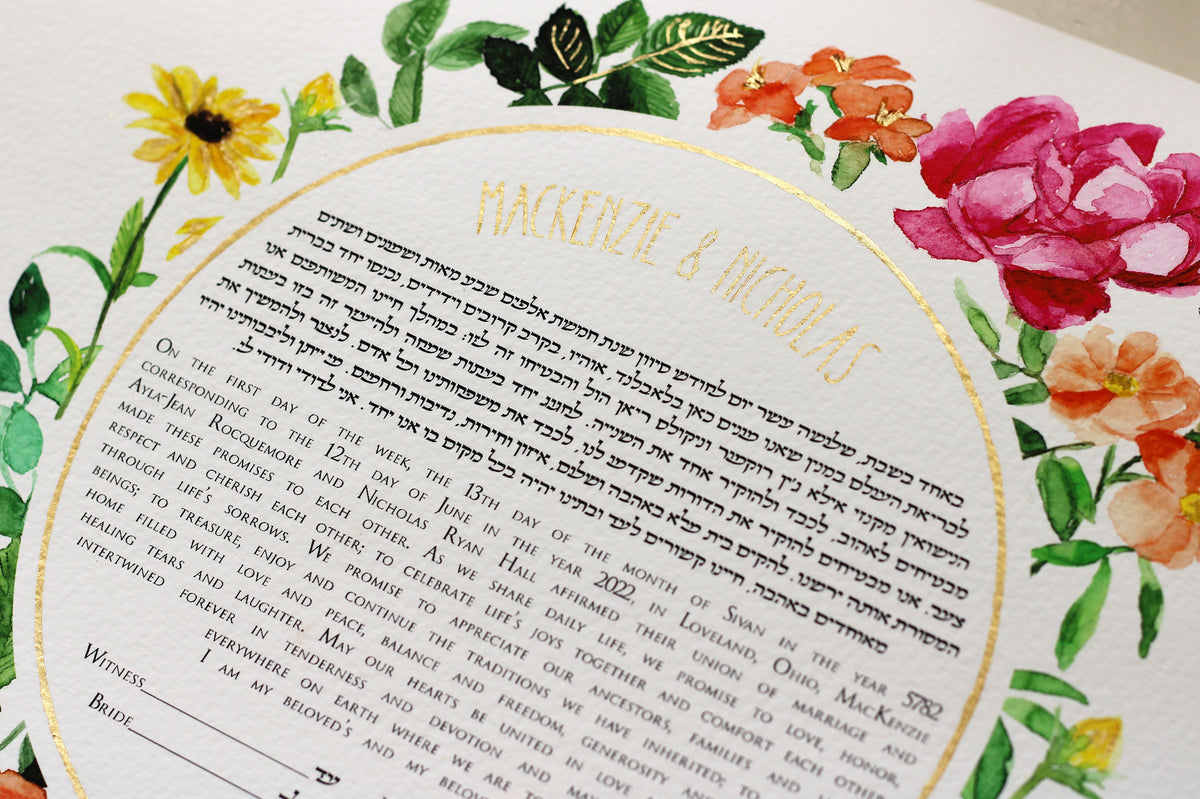 MACKENZIE & NICHOLAS
באחד בשבת, שלושה עשער יום לחודש סיוון שנת חמשת אלפים שבע מאות ושמונים ושתים
לבריאת העולם במנין שאנו מונים כאן בלאבלנד, אוהיו, בקרב קרובים וידידים, נכנסו יחד בברית
הנישואין מקנזי אילא ג'ין רוקמור וניקולס ריאן הול והבטיחו זה לזו: במהלך חיינו המשותפים אנו
מבטיחים לאהוב, לכבד ולהוקיר אחד את השנייה. לחגוג יחד בעתות שמחה ולהיעזר זה בזו בעתות
צער. אנו מבטיחים להוקיר את הדורות שקדמו לנו, לכבד את משפחותינו וכל אדם. לנצור ולהמשיך את
המסורת אותה ירשנו. להקים בית מלא באהבה ושלום, איזון וחירות, נדיבות ורחמים. מי ייתן וליבבותינו יהיו
מאוחדים באהבה, חיינו קשורים לעד ובתינו יהיה בכל מקום בו אנו יחד. אני לדודי ודודי לי.
On the first day of the week, the 13th day of the month of Sivan in the year 5782
corresponding to the 12th day of June in the year 2022, in Loveland, Ohio, MacKenzie
Ayla-Jean Rocquemore and Nicholas Ryan Hall affirmed their union of marriage and
made these promises to each other. As we share daily life, we promise to love, honor,
respect and cherish each other; to celebrate life's joys together and comfort each other
through life's sorrows. We promise to appreciate our ancestors, families and
beings; to treasure, enjoy and continue the traditions we have inherited; to
home filled with love and peace, balance and freedom, generosity and
healing tears and laughter. May our hearts be united in love
intertwined forever in tenderness and devotion and may
everywhere on earth where we are
I am my beloved's and my
Witness עד
Bride